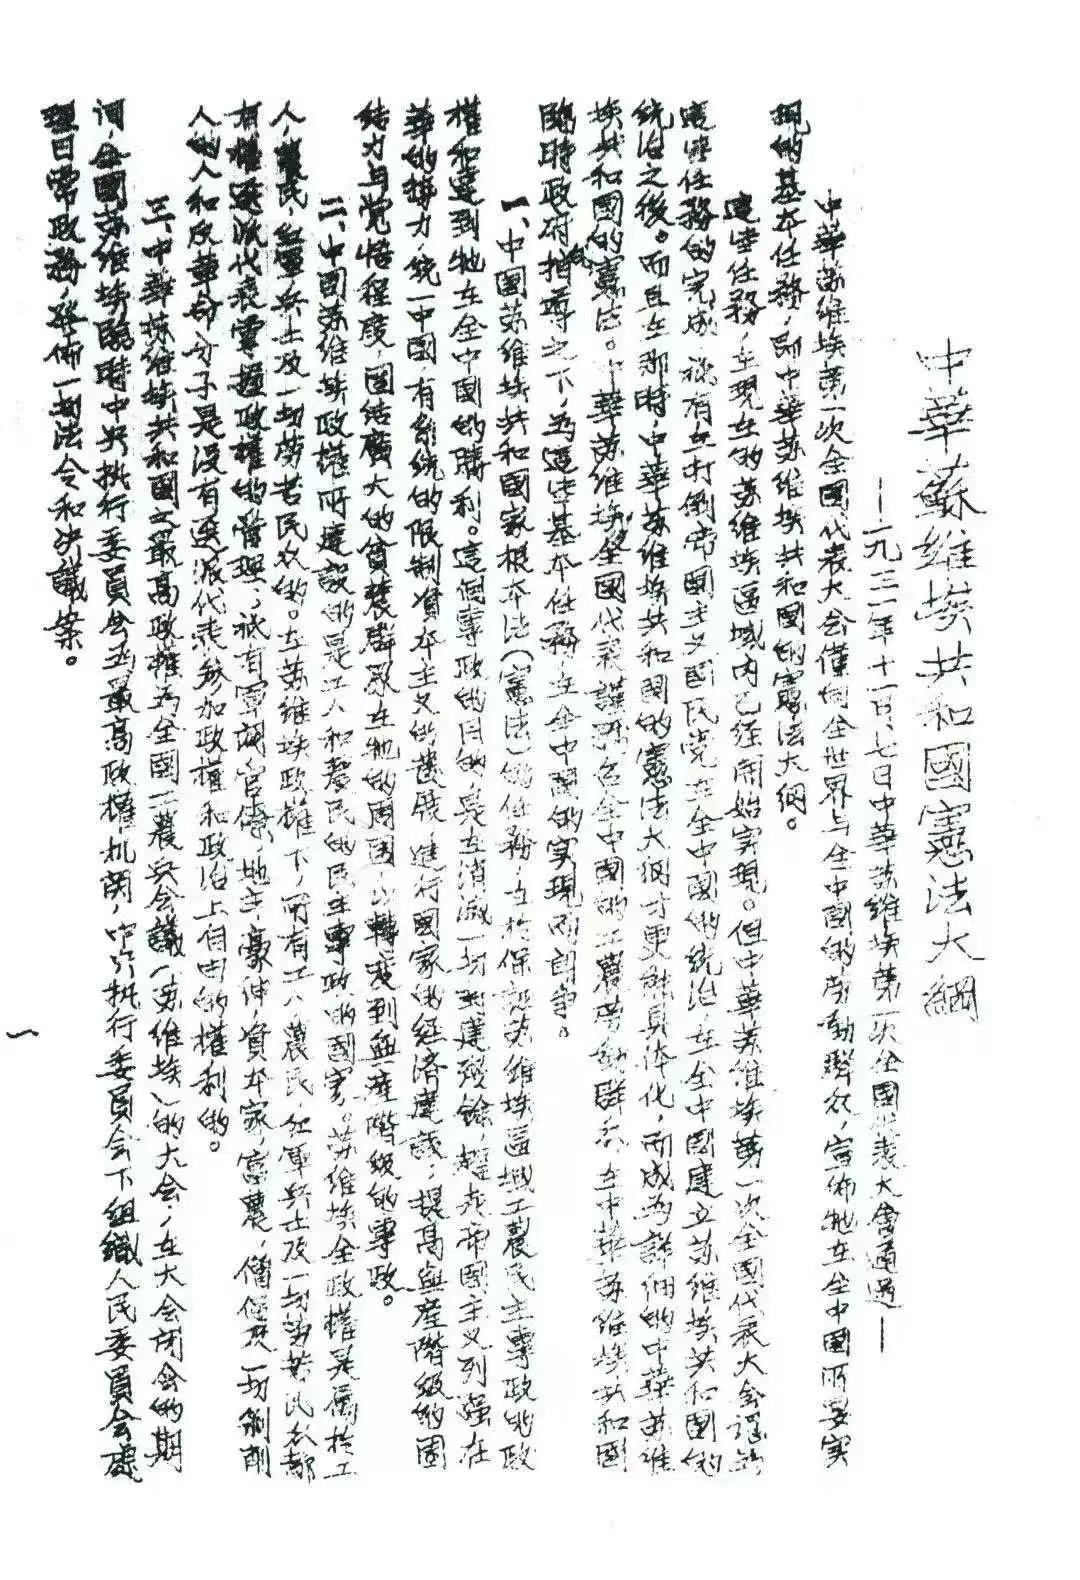 中華蘇維埃共和國憲法大綱
—一九三一年十一月七日中華苏維埃第一次全國代表大會通过—
中華苏維埃第一次全國代表大会僅向全世界与全中國的劳動群众,宣佈牠在全中國所要实
现的基本任務,即中華苏维埃共和國的憲法大纲。
這些任務,在現在的苏維埃區域内已经開始实現。但中華苏維埃第一次全國代表大会認為
這些任務的完成,祇有在打倒帝國主义國民党在全中國的統治,在全中國建立苏維埃共和國的
統治之後。而且在那時,中華苏維埃共和國的憲法大纲才更能具体化,而成为詳细的中華苏維
埃共和國的憲法。中華苏維埃全國代表謹號召全中國的工農劳動群众,在中華苏維埃共和國
臨時政府指導之下,為這些基本任務在全中國的实現而鬥争。
一、中國苏維埃共和國家根本法(憲法)的任務,在於保証苏維埃區域工農民主專政的政
權和達到牠在全中國的勝利。這個專政的目的,是在消滅一切封建殘餘,趕走帝國主义列强在
華的势力,統一中國,有系統的限制資本主义的發展,進行國家的经济建設,提高無產階級的團
结力与党悟程度,團结廣大的貧農群眾在牠的周圍,以轉变到無產階級的專政。
二、中國苏維埃政權所建設的是工人和農民的民主專政的國家。苏維埃全政權是属於工
人,農民,红軍兵士及一切劳苦民众的。在苏維埃政權下,所有工人,農民,红軍兵士及一切劳苦民众都
有權選派代表掌握政權的管理,祇有軍閥,官僚,地主,豪绅,資本家,富農,僧侣及一切剝削
人的人和反革命分子是没有選派代表参加政權和政治上自由的權利的。
三、中華苏維埃共和國之最高政權為全國工農兵会議(苏維埃)的大会,在大会闭会的期
间,全國苏維埃臨時中央执行委員会為最高政權机関,中央执行委員会下組織人民委員会處
理日常政務,發佈一切法令和决議案。
一